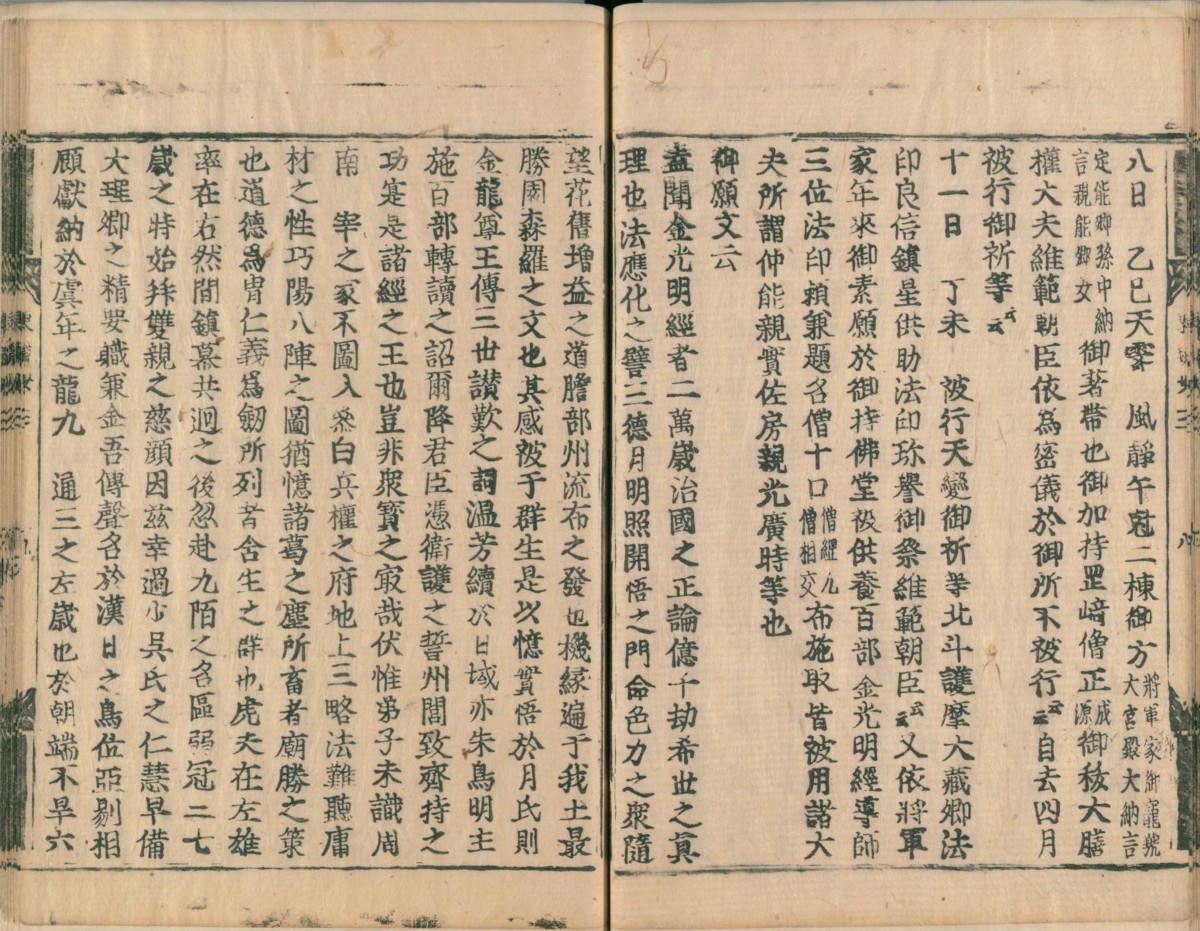 八日　乙巳天霽　風靜午尅二棟御方將軍家御寵號大宮殿大納言
定能卿孫中納言親能卿女御著帶也御加持罡﨑僧正成源御祓大膳
權大夫維範朝臣依為密儀於御所不被行云云自去四月
被行御祈等云云
十一日　丁未　被行天變御祈等北斗護摩大藏卿法
印良信鎮星供助法印珎譽御祭維範朝臣云云又依將軍
家年來御素願於御持佛堂被供養百部金光明經導師
三位法印賴兼題名僧十口僧綱九僧相交布施取皆被用諸大
夫所謂仲能親實佐房親光廣時等也
御願文云
盖聞金光明經者二萬歲治國之正論億千劫希世之眞
理也法應化之譬三德月明照開悟之門命色力之衆隨
望花舊增益之道贍部州流布之發也機緣遍于我土最
勝園森羅之文也其感被于群生是以憶實悟於月氏則
金龍尊王傳三世讃歎之詞温芳績於日域亦朱鳥明主
施百部轉讀之詔爾降君臣憑衛護之誓州閭致齊持之
功寔是諸經之王也豈非衆寶之最哉伏惟弟子未識周
南　宰之家不圖入 白兵權之府地上三略法難聽庸
材之性巧陽八陣之圖猶憶諸葛之塵所畜者廟勝之策
也道德為胄仁義為劒所列者含生之群也虎夫在左雄
率在右然間鎮幕共迴之後忽赴九陌之名區弱冠二七
歲之特始拜雙親之慈顔因茲幸過少昊氏之仁慧早備
大理卿之精要職兼金吾傳聲名於漢日之鳥位亞剔相
顧獻納於虞年之龍九　通三之左歲也於朝端不早六